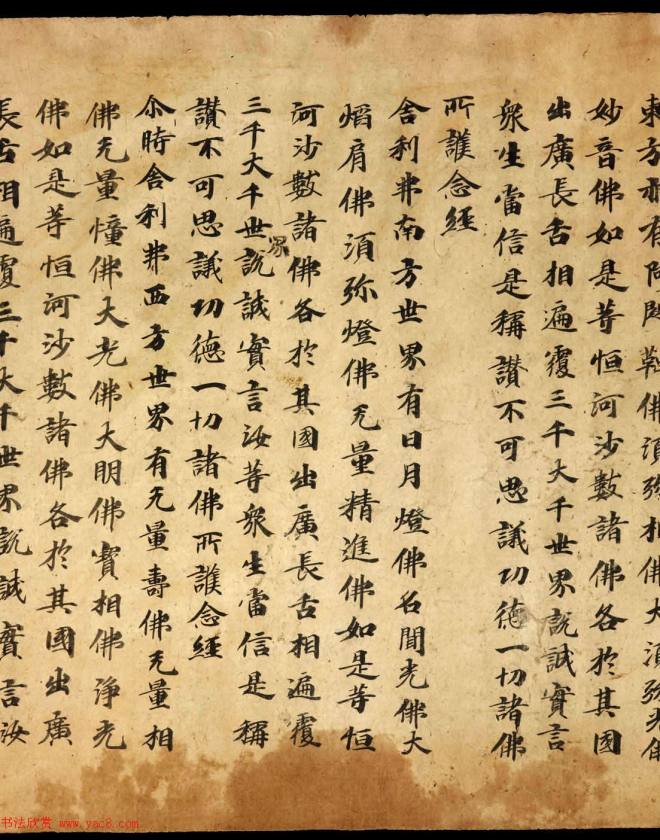 東方亦有阿閦鞞佛須弥相佛大須弥光佛
妙音佛如是等恒河沙數諸佛各於其國
出廣長舌相遍覆三千大千世界說誠實言
衆生當信是稱讚不可思議功德一切諸佛
所護念經
舍利弗南方世界有日月燈佛名聞光佛大
焰肩佛須弥燈佛无量精進佛如是等恒
河沙數諸佛各於其國出廣長舌相遍覆
三千大千世界說誠實言汝等衆生當信是稱
讚不可思議功德一切諸佛所護念經
尒時舍利弗西方世界有无量壽佛无量相
佛无量憧佛大光佛大明佛寶相佛淨光
佛如是等恒河沙數諸佛各於其國出廣
長舌相遍覆三千大千世界說誠實言汝
书法欣赏 www.yac8.com